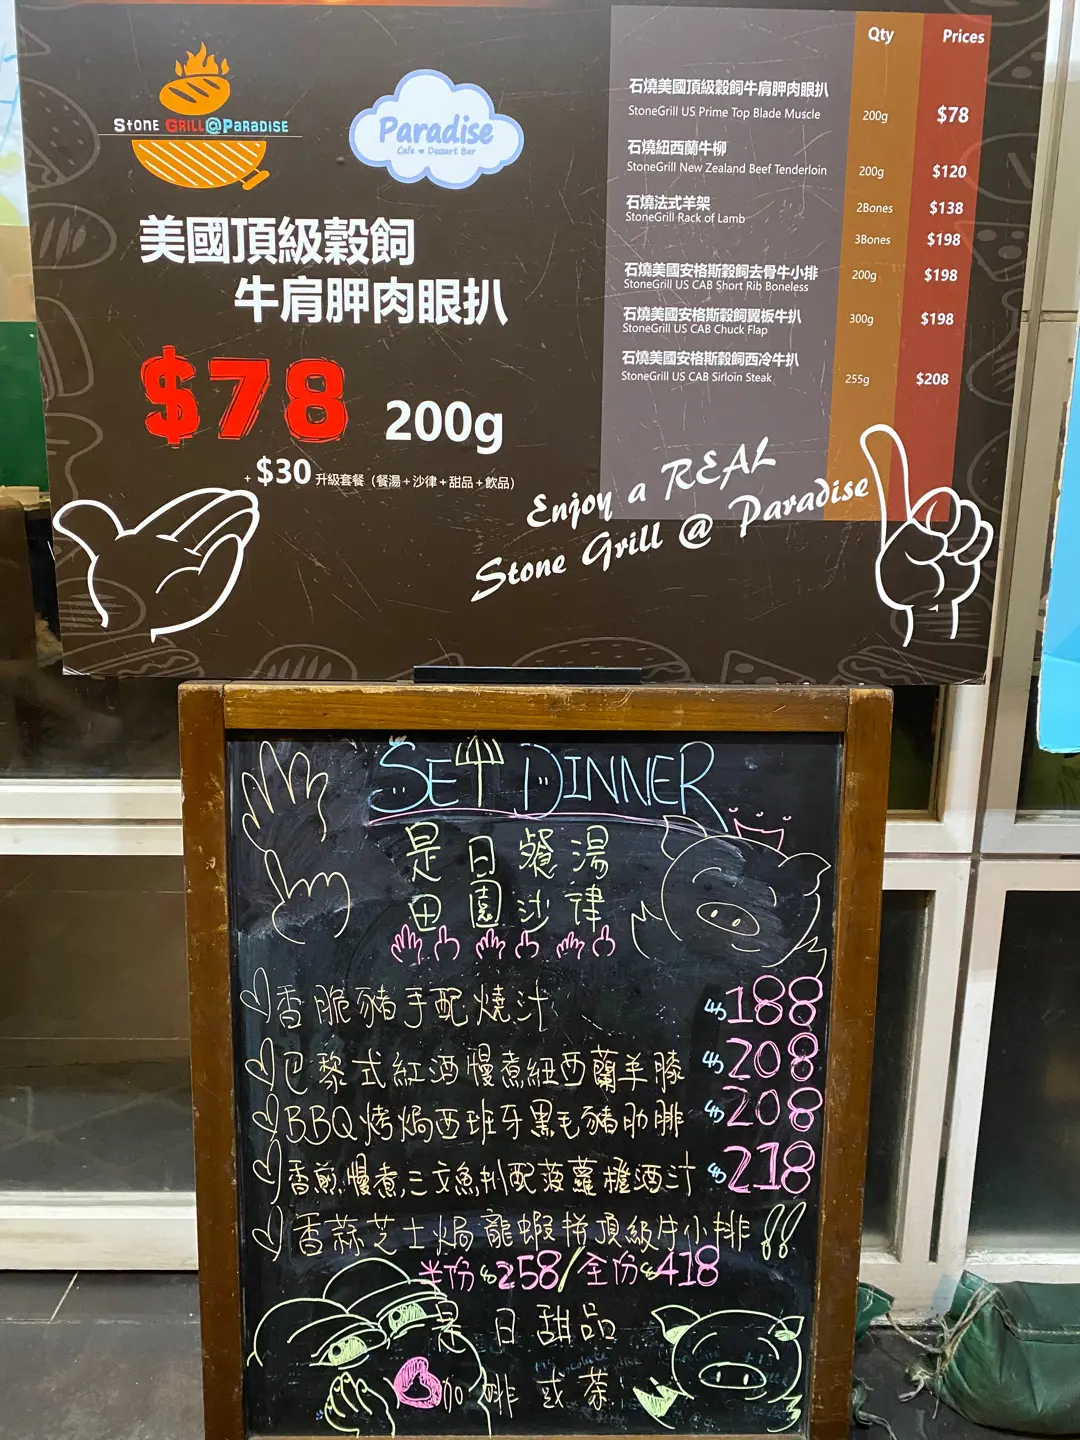 STONE GRILL@PARADISE
Paradise
Cafe ♥ Dessert Bar
美國頂級穀飼
牛肩胛肉眼扒
$78 200g
+ $30 升級套餐（餐湯+沙律+甜品+飲品）
Qty Prices
石燒美國頂級穀飼牛肩胛肉眼扒
StoneGrill US Prime Top Blade Muscle 200g $78
石燒紐西蘭牛柳
StoneGrill New Zealand Beef Tenderloin 200g $120
石燒法式羊架
StoneGrill Rack of Lamb 2Bones $138
3Bones $198
石燒美國安格斯穀飼去骨牛小排
StoneGrill US CAB Short Rib Boneless 200g $198
石燒美國安格斯穀飼翼板牛扒
StoneGrill US CAB Chuck Flap 300g $198
石燒美國安格斯穀飼西冷牛扒
StoneGrill US CAB Sirloin Steak 255g $208
Enjoy a REAL
Stone Grill @ Paradise
SET DINNER
是日餐湯
田園沙律
香脆豬手配燒汁 $188
巴黎式紅酒慢煮紐西蘭羊膝 $208
BBQ烤焗西班牙黑毛豬肋排 $208
香煎慢煮三文魚扒配菠蘿橙酒汁 $218
香蒜芝士焗龍蝦拼頂級牛小排!!
半份$258/全份$418
是日甜品
咖啡或茶